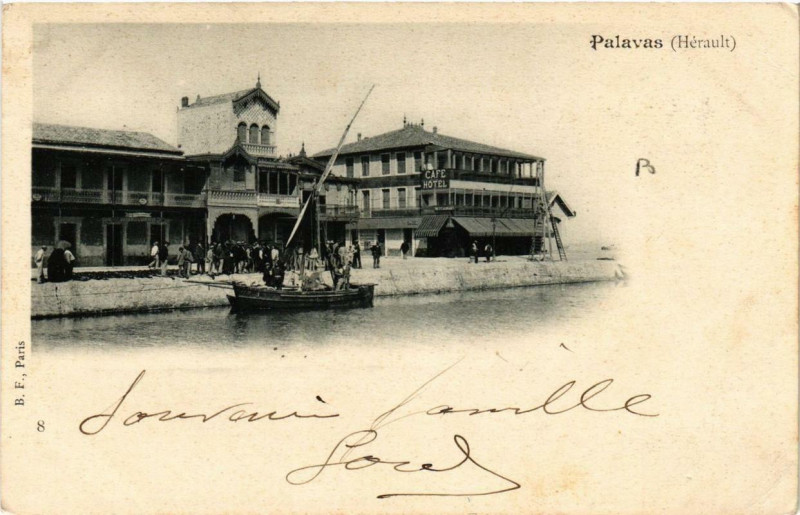 Palavas (Hérault)
B
CAFÉ
HÔTEL
B. F., Paris
8
Souvenir famille
Sorel